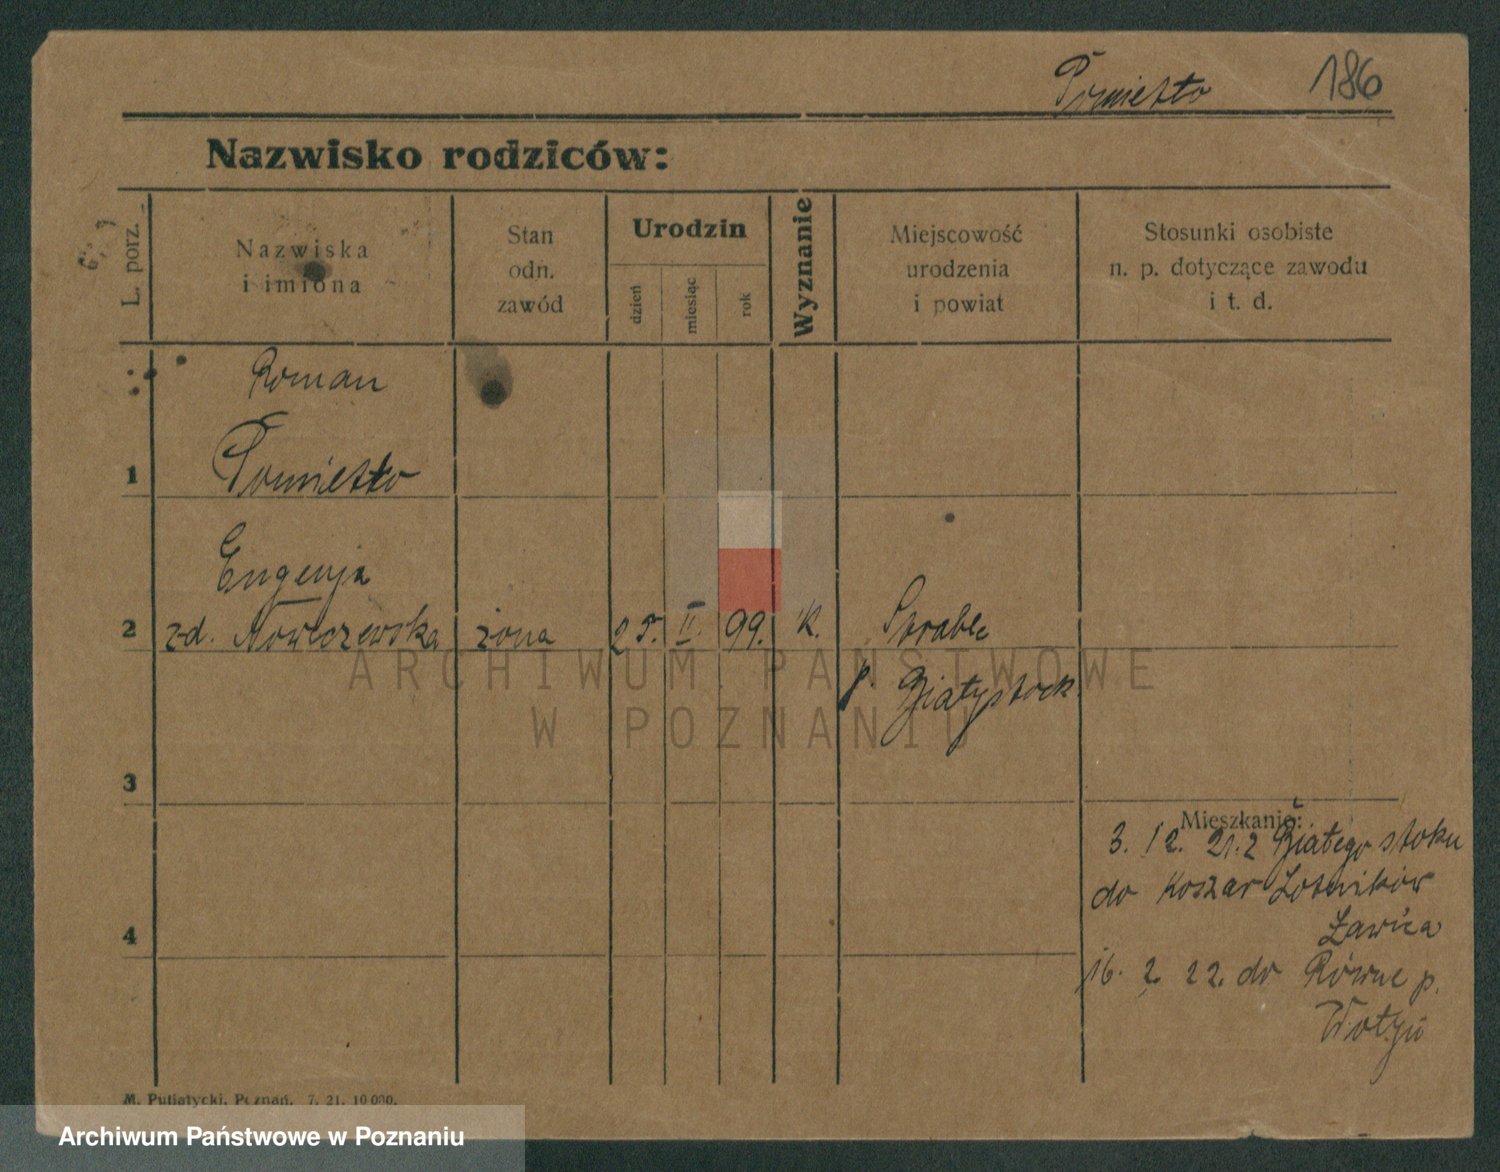 186
Nazwisko rodziców:
L. porz.
Nazwiska
i imiona
Stan
odn.
zawód
Urodzin
dzień
miesiąc
rok
Wyznanie
Miejscowość
urodzenia
i powiat
Stosunki osobiste
n. p. dotyczące zawodu
i t. d.
Roman
1
Eugenja
2 z d. żona II. 99. K.
p. Białystock
3
Mieszkanie:
3. 12. 21. z Białego stoku
do Koszar Lotników
Ławica
4
16. 2. 22. do Równe p.
Wołyń
ARCHIWUM PAŃSTWOWE
W POZNANIU
M. Putiatycki, Poznań. 7. 21. 10 000.
Archiwum Państwowe w Poznaniu